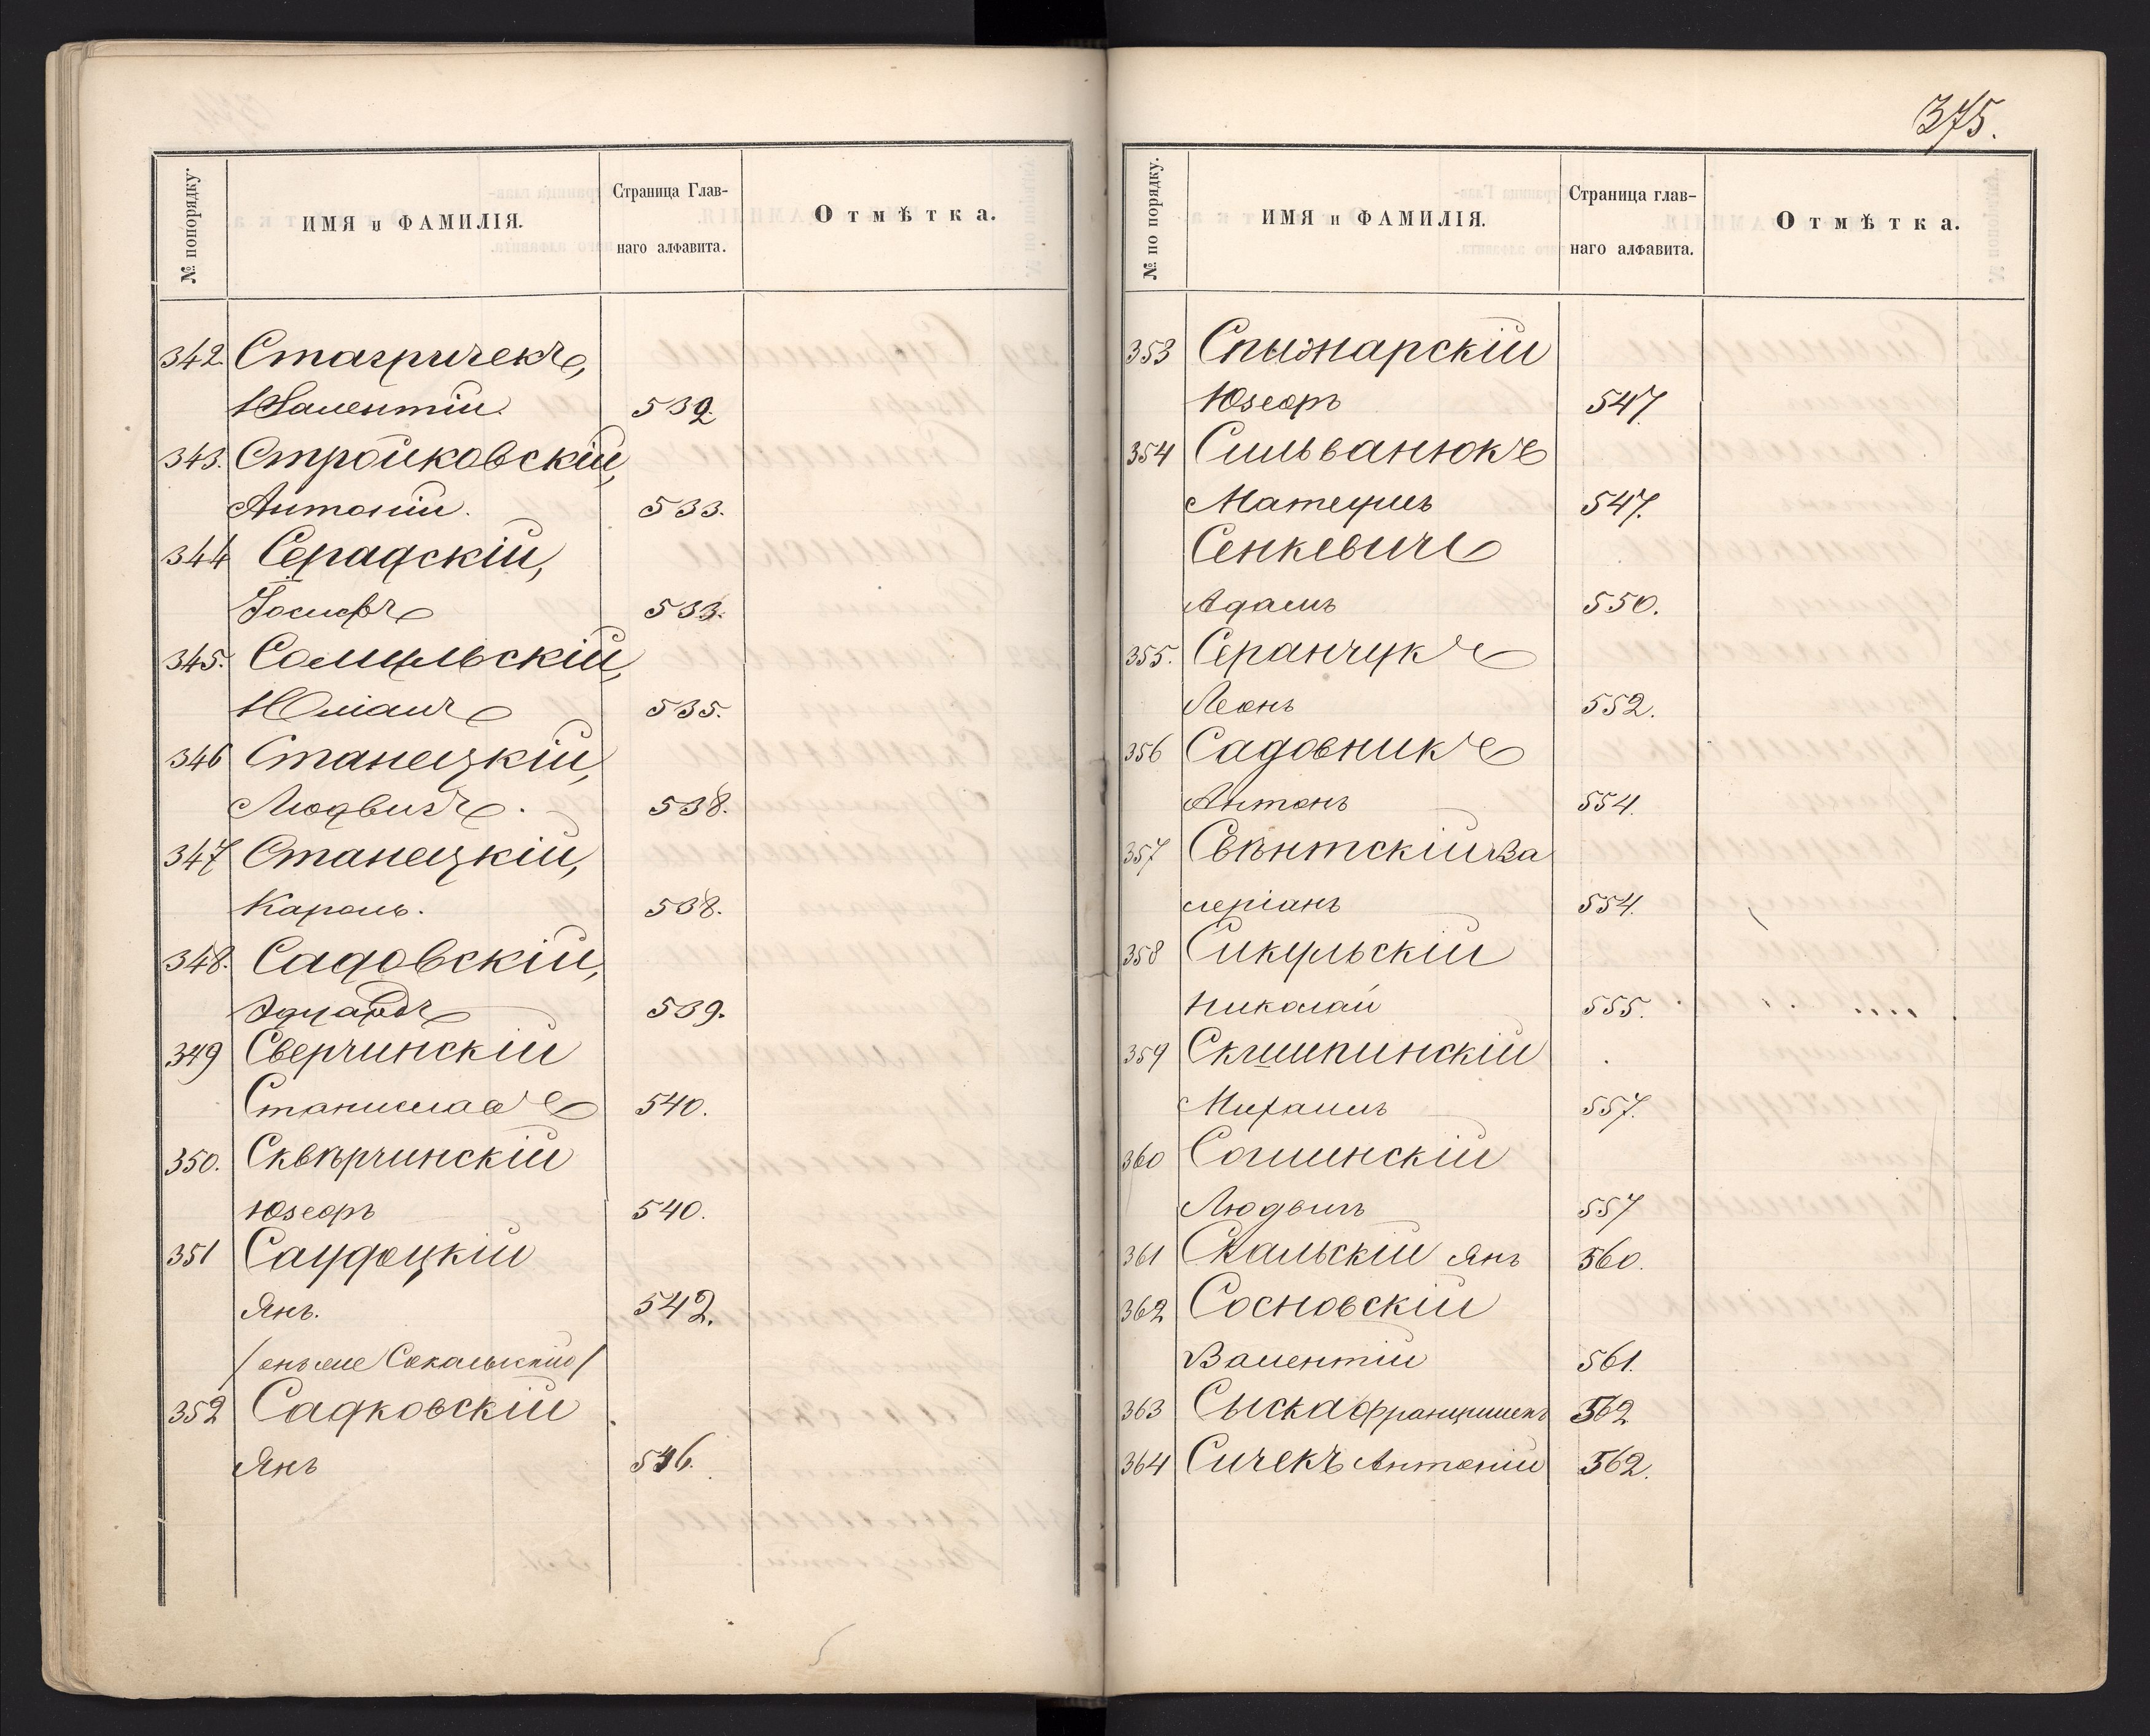 375.
№ попорядку.
ИМЯ и ФАМИЛІЯ.
Страница Глав-
наго алфавита.
Отмѣтка.
342. Стагричекъ,
Валентій. 532.
343. Стройковскій,
Антоній. 533.
344 Серадскій,
Іосифъ 533.
345. Сомульскій,
Юліанъ 535.
346 Станецкій,
Людвигъ. 538.
347 Станецкій,
Кароль. 538.
348. Садовскій,
Эдуардъ 539.
349 Сверчинскій
Станиславъ 540.
350. Сквѣрчинскій
Юзефъ 540.
351 Саудоцкій
Янъ. 542.
/онъ же Сокальскій/
352 Садковскій
Янъ 546.
№ по порядку.
ИМЯ и ФАМИЛІЯ.
Страница глав-
наго алфавита.
Отмѣтка.
353 Спыжарскій
Юзефъ 547.
354 Сильванюкъ
Матеушъ 547.
Сенкевичъ
Адамъ 550.
355. Серанчукъ
Леонъ 552.
356 Садовникъ
Антонъ 554.
357 Свѣнтскій Ва
леріанъ 554.
358 Сикульскій
Николай 555.
359 Скшипинскій
Михаилъ 557.
360 Сошинскій
Людвигъ 557
361 Скальскій Янъ 560.
362 Сосновскій
Валентій 561.
363 Сыска Францишекъ 562
364 Сичекъ Антоній 562.